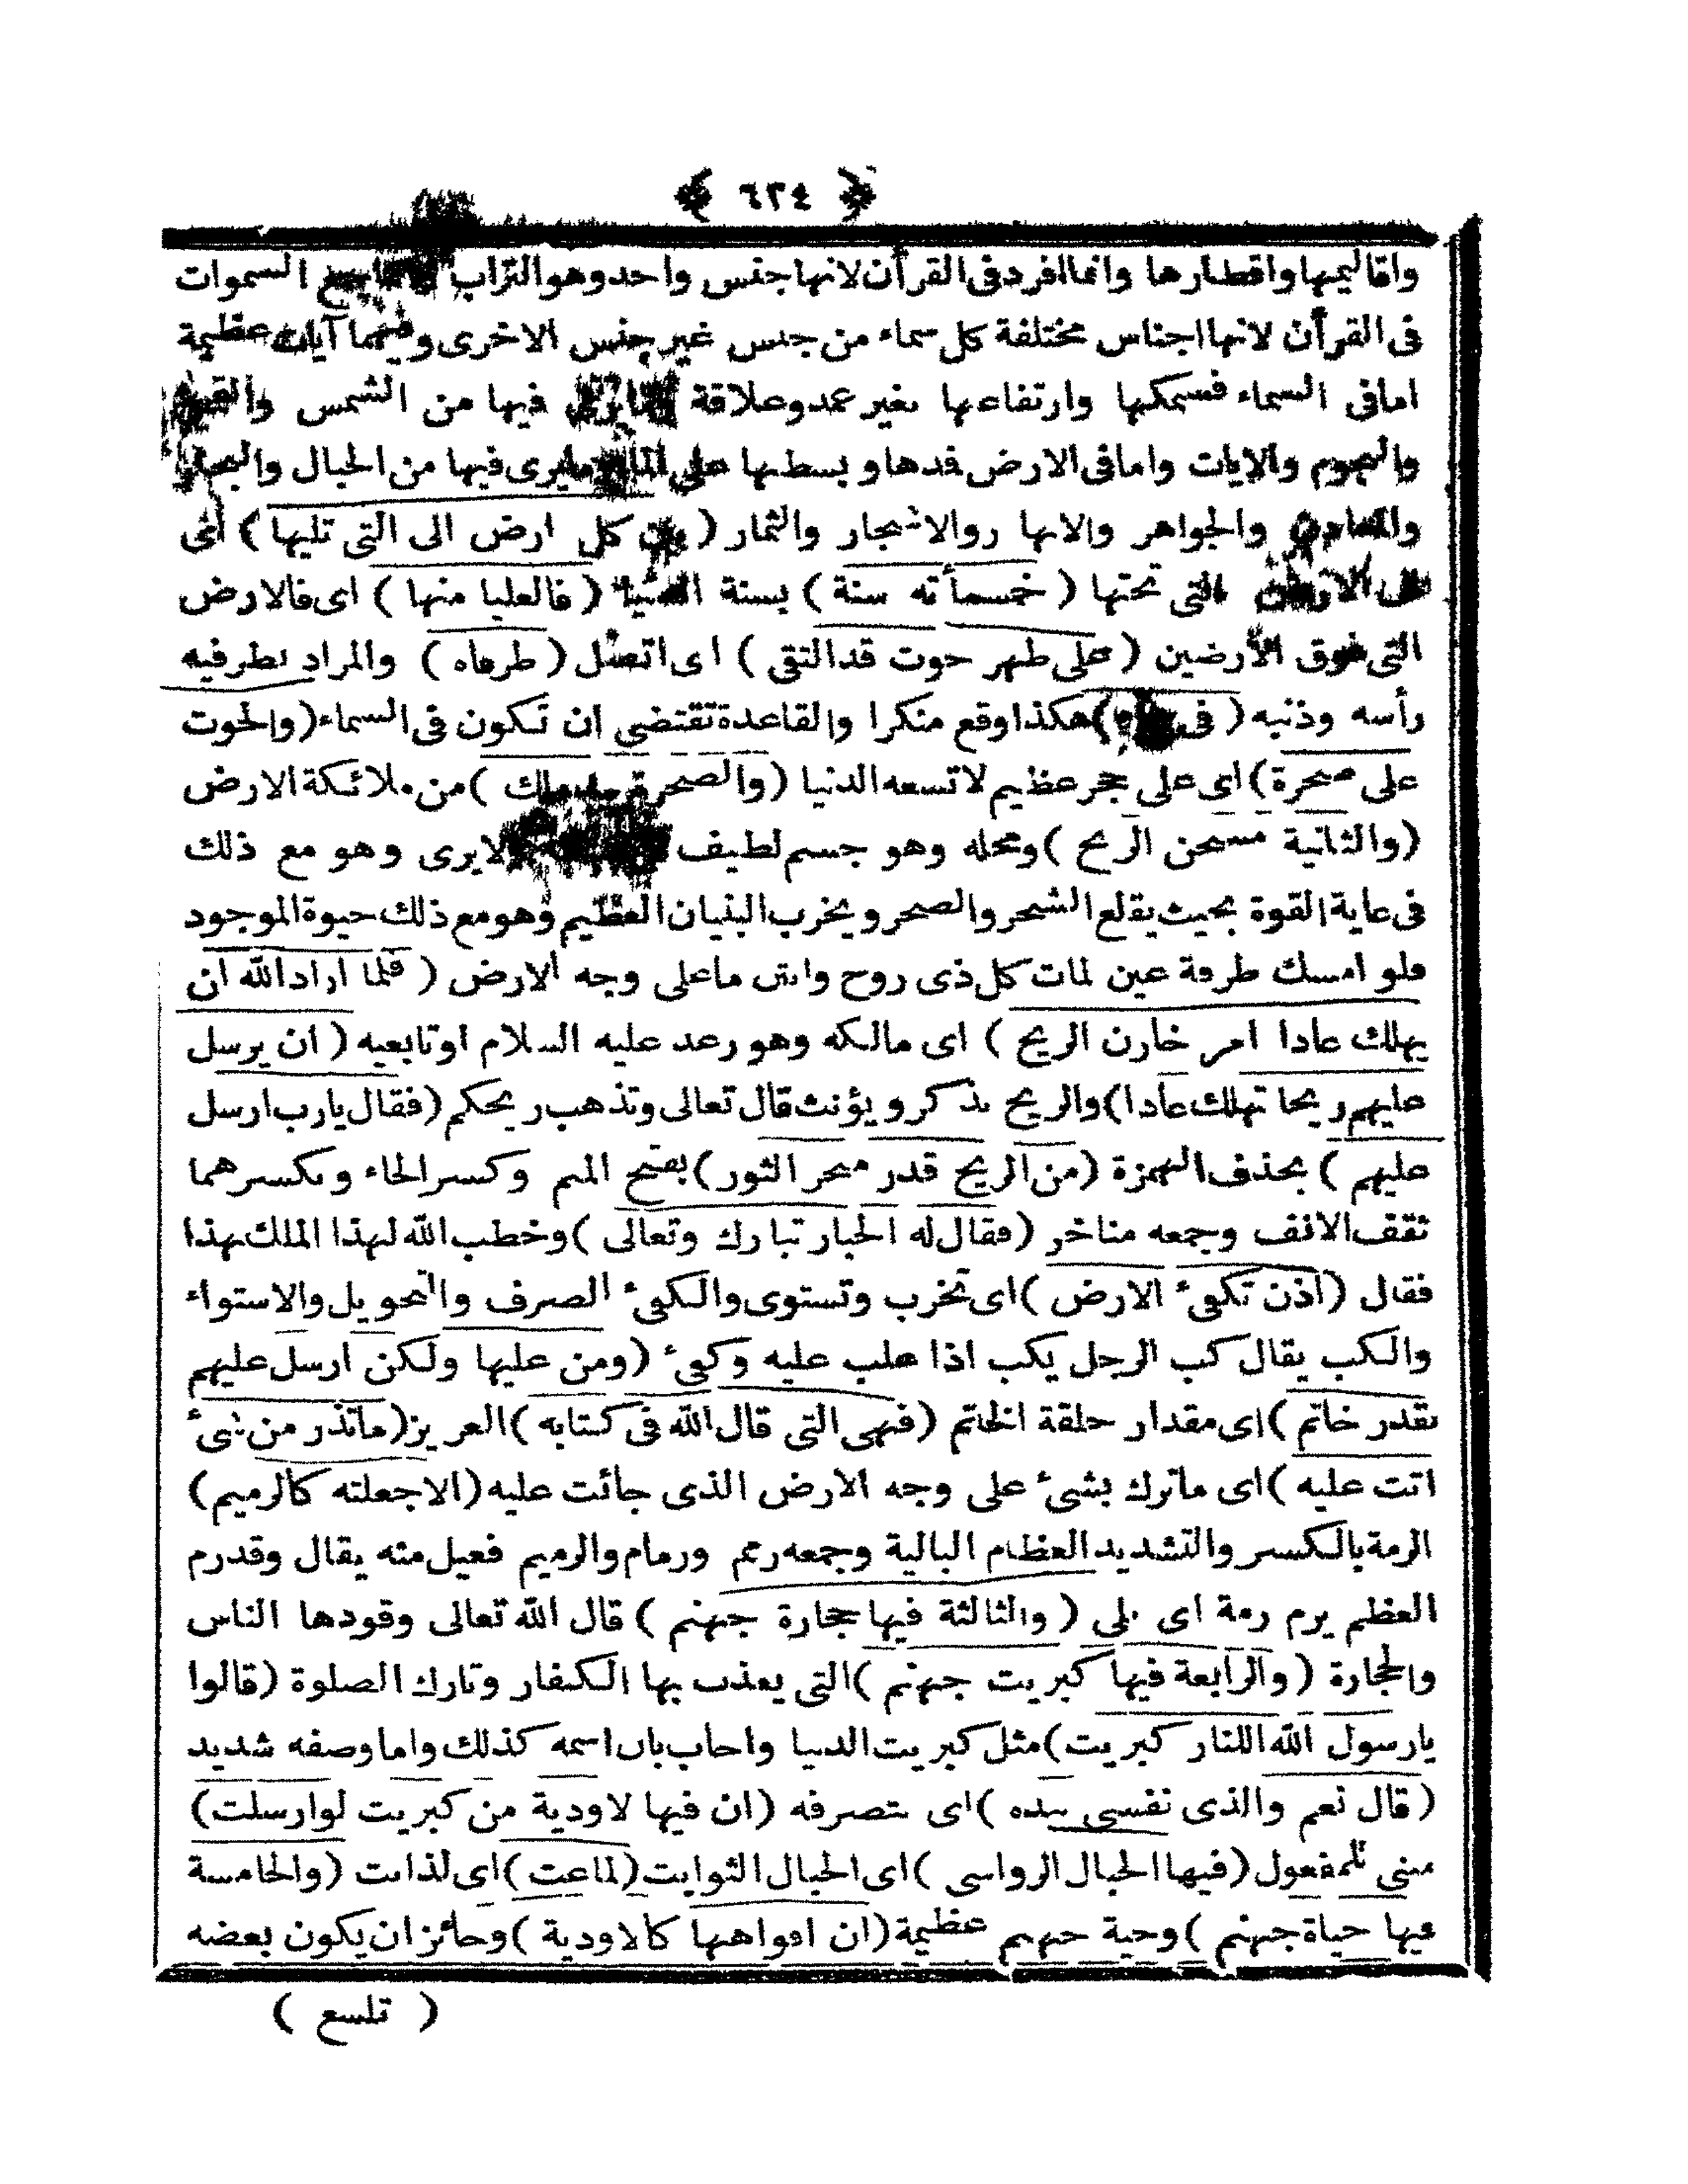 ﴿ ٦٢٤ ﴾
واقاليمها واقطارها وانما افرد فى القرأن لانها جنس واحد وهو التراب السموات
فى القرأن لانها اجناس مختلفة كل سماء من جنس غير جنس الاخرى وفيهما آيات عظيمة
اما فى السماء فسمكها وارتفاعها بغير عمد وعلاقة وما يرى فيها من الشمس والقمر
والنجوم والايات واما فى الارض فدها وبسطها على الماء وما يرى فيها من الجبال والبحار
والمعادن والجواهر والانها روالاشجار والثمار ( بين كل ارض الى التى تليها ) اى
الى الارض التى تحتها ( خمسمأته سنة ) بسنة الدنيا ( فالعليا منها ) اى فالارض
التى فوق الأرضين ( على ظهر حوت قد التقى ) اى اتصل ( طرفاه ) والمراد بطرفيه
رأسه وذنبه ( فى ) هكذا وقع منكرا والقاعدة تقتضى ان تكون فى السماء ( والحوت
على صخرة ) اى على حجر عظيم لا تسعه الدنيا ( والصخرة بيد ملك ) من ملائكة الارض
( والثانية مسجن الريح ) ومحله وهو جسم لطيف لايرى وهو مع ذلك
فى غاية القوة بحيث يقلع الشجر والصخر ويخرب البنيان العظيم وهو مع ذلك حيوة الموجود
فلو امسك طرفة عين لمات كل ذى روح وانتن ما على وجه الارض ( فلما اراد الله ان
يهلك عادا امر خازن الريح ) اى مالكه وهو رعد عليه السلام او تابعيه ( ان يرسل
عليهم ريحا تهلك عادا ) والريح يذكر ويؤنث قال تعالى وتذهب ريحكم ( فقال يارب ارسل
عليهم ) بحذف الهمزة ( من الريح قدر منخر الثور ) بفتح الميم وكسر الخاء وبكسرهما
ثقف الانف وجمعه مناخر ( فقال له الجبار تبارك وتعالى ) وخطب الله لهذا الملك بهذا
فقال ( اذن تكفىء الارض ) اى تخرب وتستوى والكفىء الصرف والتحويل والاستواء
والكب يقال كب الرجل يكب اذا غلب عليه وكفىء ( ومن عليها ولكن ارسل عليهم
بقدر خاتم ) اى مقدار حلقة الخاتم ( فهى التى قال الله فى كتابه ) العزيز ( ماتذر من شىء
اتت عليه ) اى ماترك بشىء على وجه الارض الذى جائت عليه ( الا جعلته كالرميم )
الرمة بالكسر والتشديد العظام البالية وجمعه رمم ورمام والرميم فعيل منه يقال وقد رم
العظم يرم رمة اى بلى ( والثالثة فيها حجارة جهنم ) قال الله تعالى وقودها الناس
والحجارة ( والرابعة فيها كبريت جهنم ) التى يعذب بها الكفار وتارك الصلوة ( قالوا
يارسول الله اللنار كبريت ) مثل كبريت الدنيا واجاب بان اسمه كذلك واما وصفه شديد
( قال نعم والذى نفسى بيده ) اى بتصرفه ( ان فيها لاودية من كبريت لوارسلت )
مبنى للمفعول ( فيها الجبال الرواسى ) اى الجبال الثوابت ( لماعت ) اى لذابت ( والخامسة
فيها حياة جهنم ) وحية جهنم عظيمة ( ان افواهها كالاودية ) وجائز ان يكون بعضه
( تلسع )